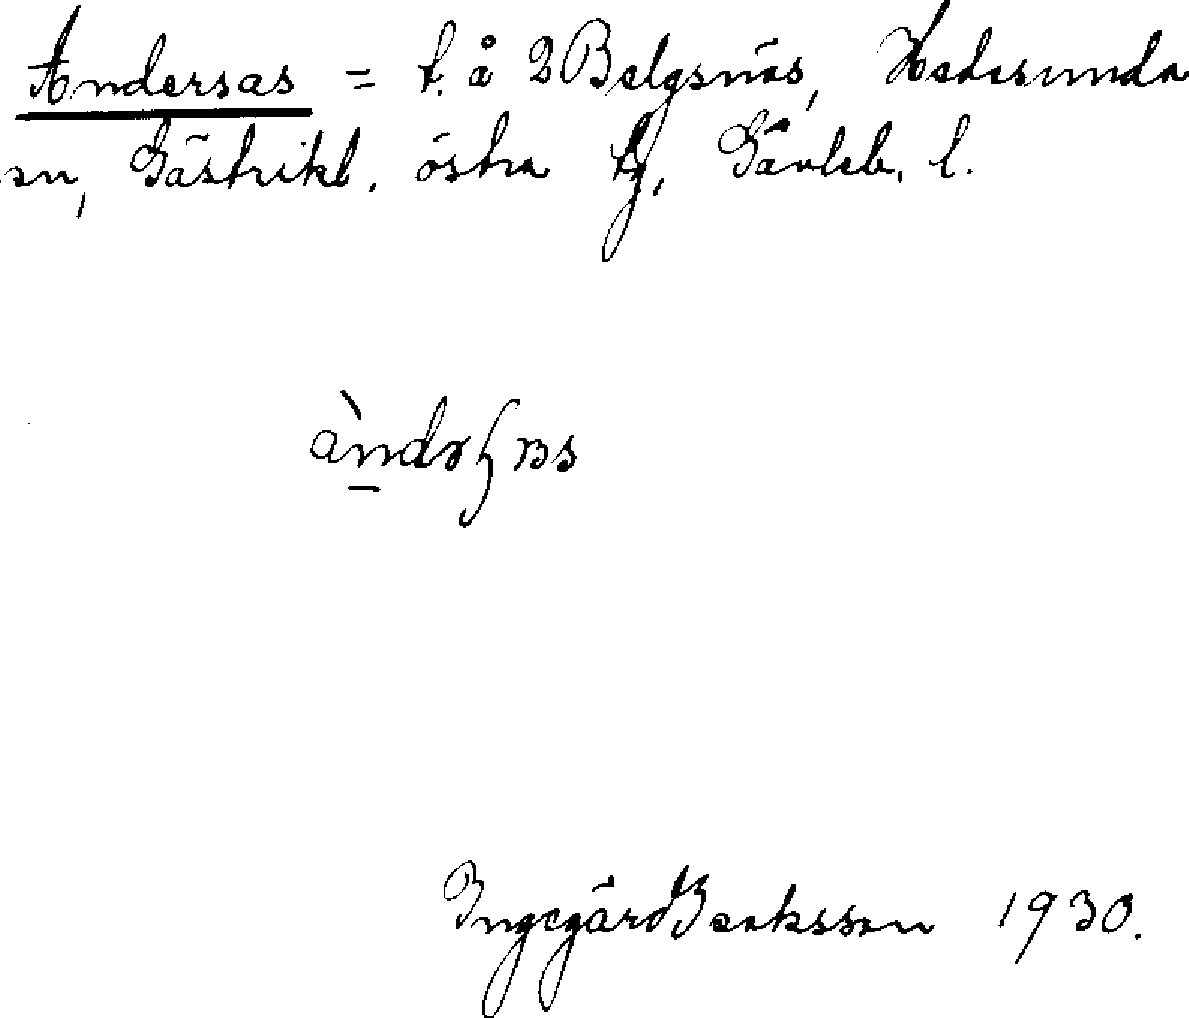 Andersas = t. å 2 Belgsnäs, Hedesunda
sn, Gästrikl. östra tg, Gävleb. l.
Ingegärd 1930.